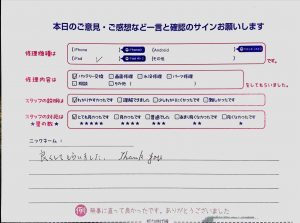 本日のご意見・ご感想など一言と確認のサインお願いします
修理機種は
iPhone
Android
iPad
その他
です。
修理内容は
バッテリー交換
画面修理
水没修理
パーツ修理
相談
その他
をしてもらいました。
スタッフの説明は
わかりやすかったです
理解できました
少しわかりにくかったです
難しかったです
スタッフの対応は
★星の数★
とても良かったです
良かったです
普通でした
あまり良くなかったです
良くなかったです
★★★★★
★★★★
★★★
★★
★
ニックネーム：
良くしてもらいました。 Thank you
無事に直って良かったです。ありがとうございました